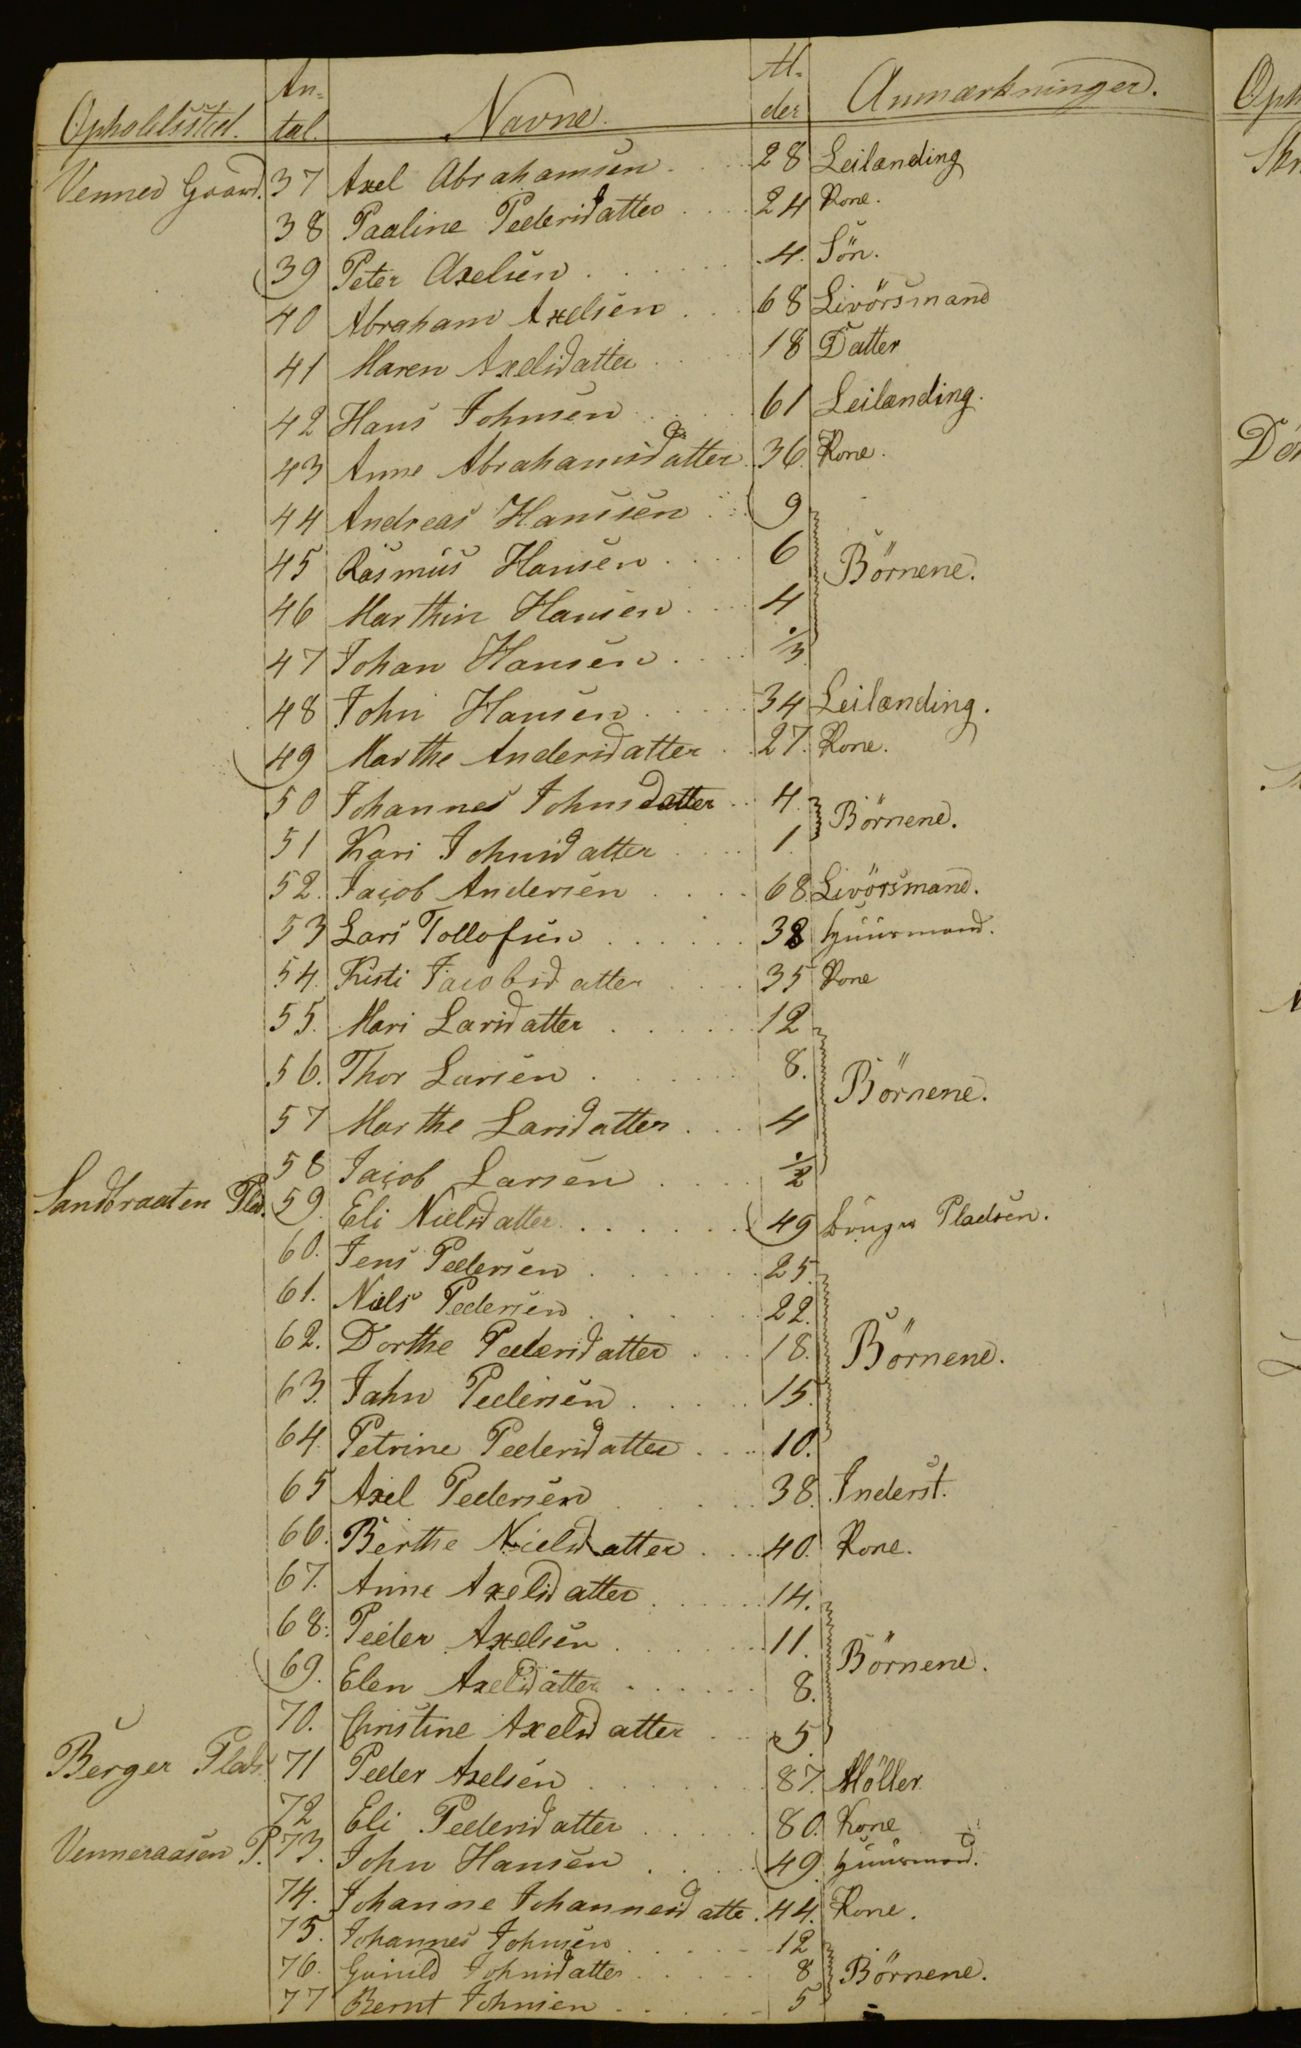 Opholdssted. An-tal. Navne. Al-der Anmærkninger.
Venner Gaard. 37 Axel Abrahamsen 28 Leilænding
38 Paaline Pedersdatter 24 Kone.
39 Peter Axelsen 4. Sön.
40 Abraham Axelsen 68 Livörsmand
41 Maren Axelsdatter 18 Datter
42 Hans Johnsen 61 Leilænding.
43 Anne Abrahamsdatter 36 Kone.
44 Andreas Hanssen 9
45 Rasmus Hansen 6 Börnene.
46 Marthin Hansen 4
47 Johan Hansen 1/3
48 John Hansen 34 Leilænding.
49 Marthe Andersdatter 27. Kone.
50 Johannes Johnsdatter 4. Börnene.
51 Kari Johnsdatter 1
52. Jacob Andersen 68 Livörsmand.
53 Lars Tollofsen 38 Huusmand.
54. Kisti Jacobsdatter 35 Kone
55. Mari Larsdatter 12
56. Thor Larsen 8. Börnene.
57 Marthe Larsdatter 4
58 Jacob Larsen 1/2
Sandbraaten Plds. 59. Eli Nielsdatter 49 bruger Pladsen.
60. Jens Pedersen 25.
61. Niels Pedersen 22.
62. Dorthe Pedersdatter 18. Börnene.
63. Jahn Pedersen 15.
64. Petrine Pedersdatter 10.
65 Axel Pedersen 38. Inderst.
66. Berthe Nielsdatter 40. Kone.
67. Anne Axelsdatter 14.
68. Peder Axelsen 11. Börnene.
69. Elen Axelsdatter 8.
70. Christine Axelsdatter 5
Berger Plads 71 Peder Axelsen 87. Möller
72 Eli Pedersdatter 80. Kone
Venneraasen P. 73. John Hansen 49. Huusmand.
74. Johanne Johannesdatte 44. Kone.
75. Johannes Johnsen 12
76. Gunild Johnsdatter 8 Börnene.
77 Bernt Johnsen 5
Oph
Skr
Dör